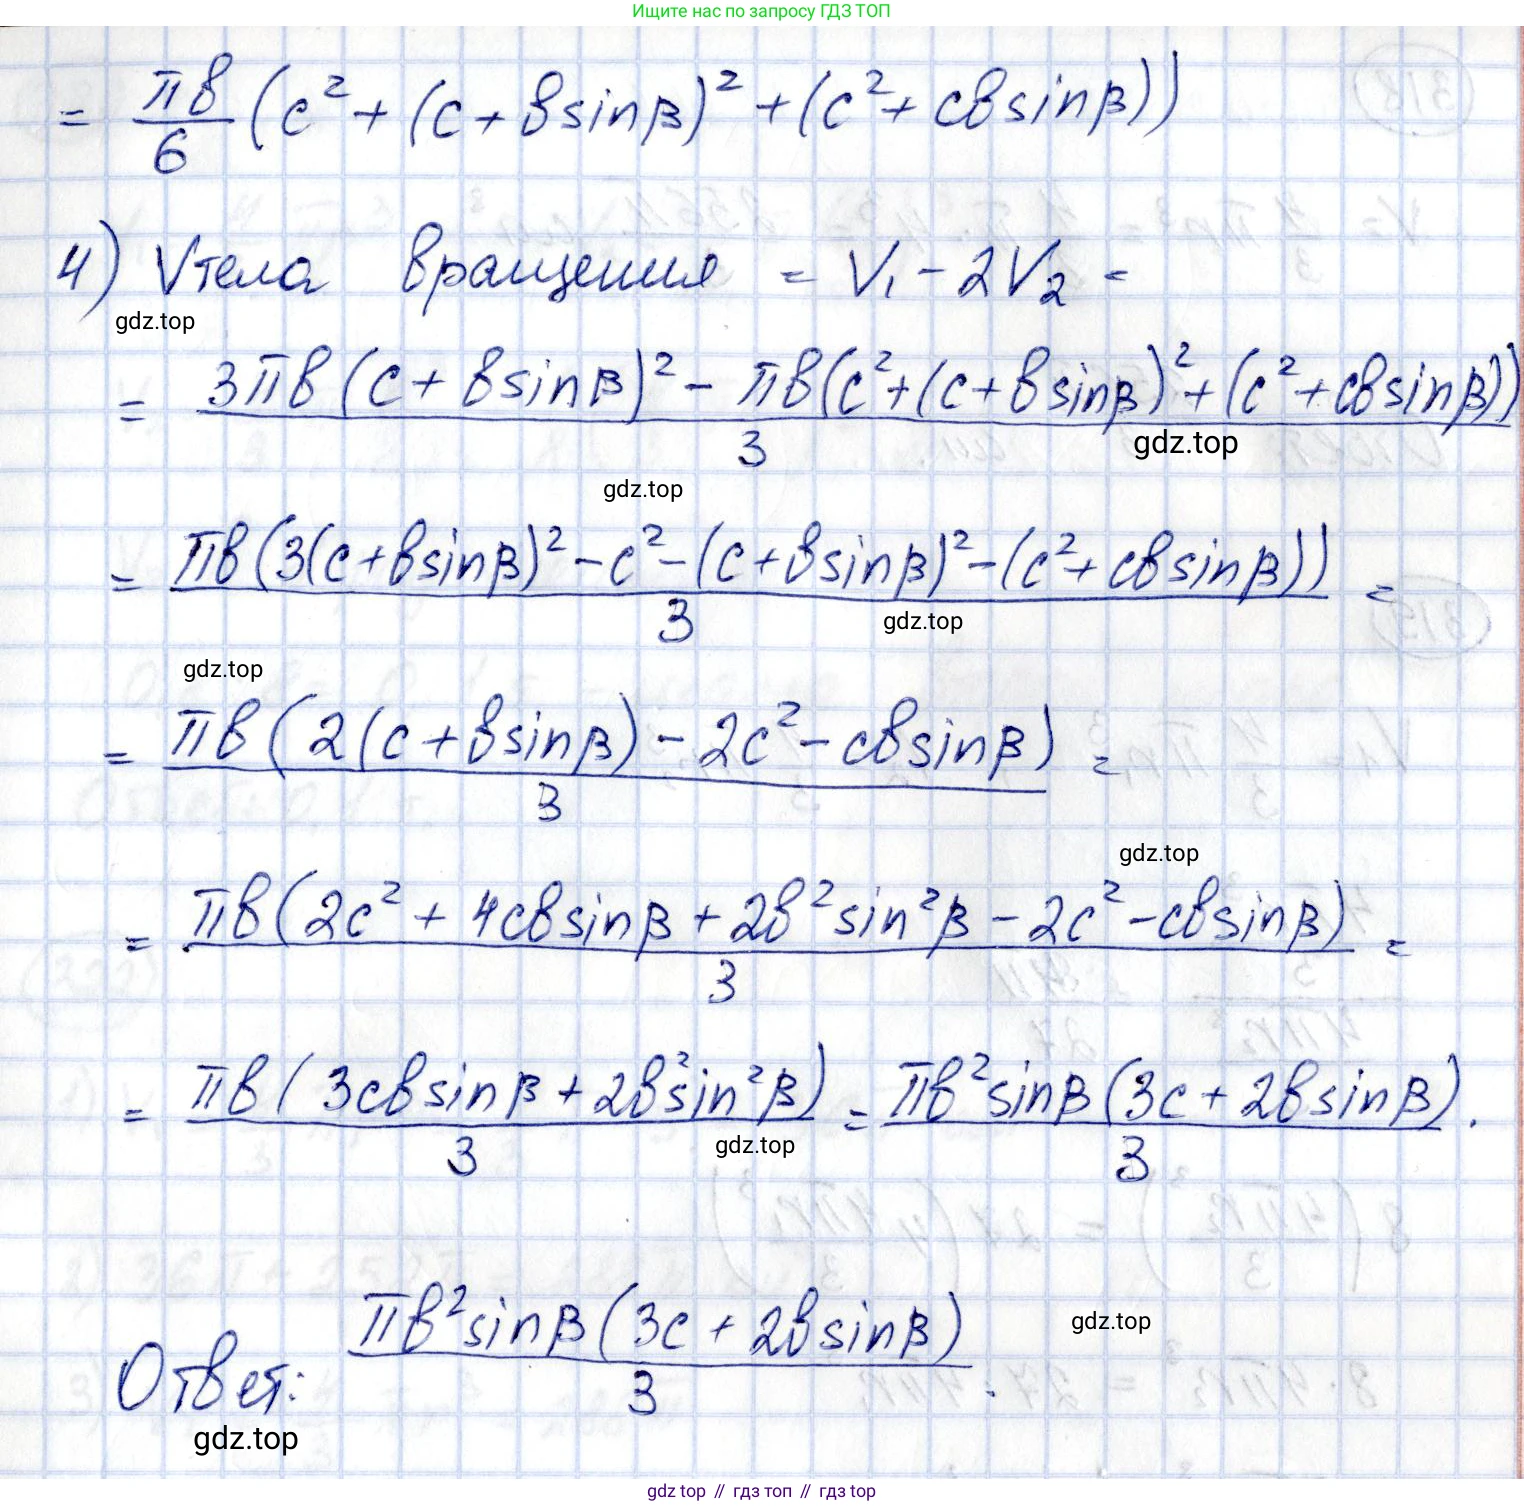 Ищите нас по запросу ГДЗ ТОП
= πв/6 (c² + (c + вsinβ)² + (c² + cвsinβ))
4) Vтела вращения = V₁ - 2V₂ =
gdz.top
= 3πв(c + вsinβ)² - πв(c² + (c + вsinβ)² + (c² + cвsinβ))/3
gdz.top
gdz.top
= πв(3(c + вsinβ)² - c² - (c + вsinβ)² - (c² + cвsinβ))/3 =
gdz.top
gdz.top
= πв(2(c + вsinβ) - 2c² - cвsinβ)/3 =
gdz.top
= πв(2c² + 4cвsinβ + 2в²sin²β - 2c² - cвsinβ)/3 =
= πв(3cвsinβ + 2в²sin²β)/3 = πв²sinβ(3c + 2вsinβ)/3.
gdz.top
Ответ: πв²sinβ(3c + 2вsinβ)/3.
gdz.top
gdz.top
gdz top // гдз топ // гдз top